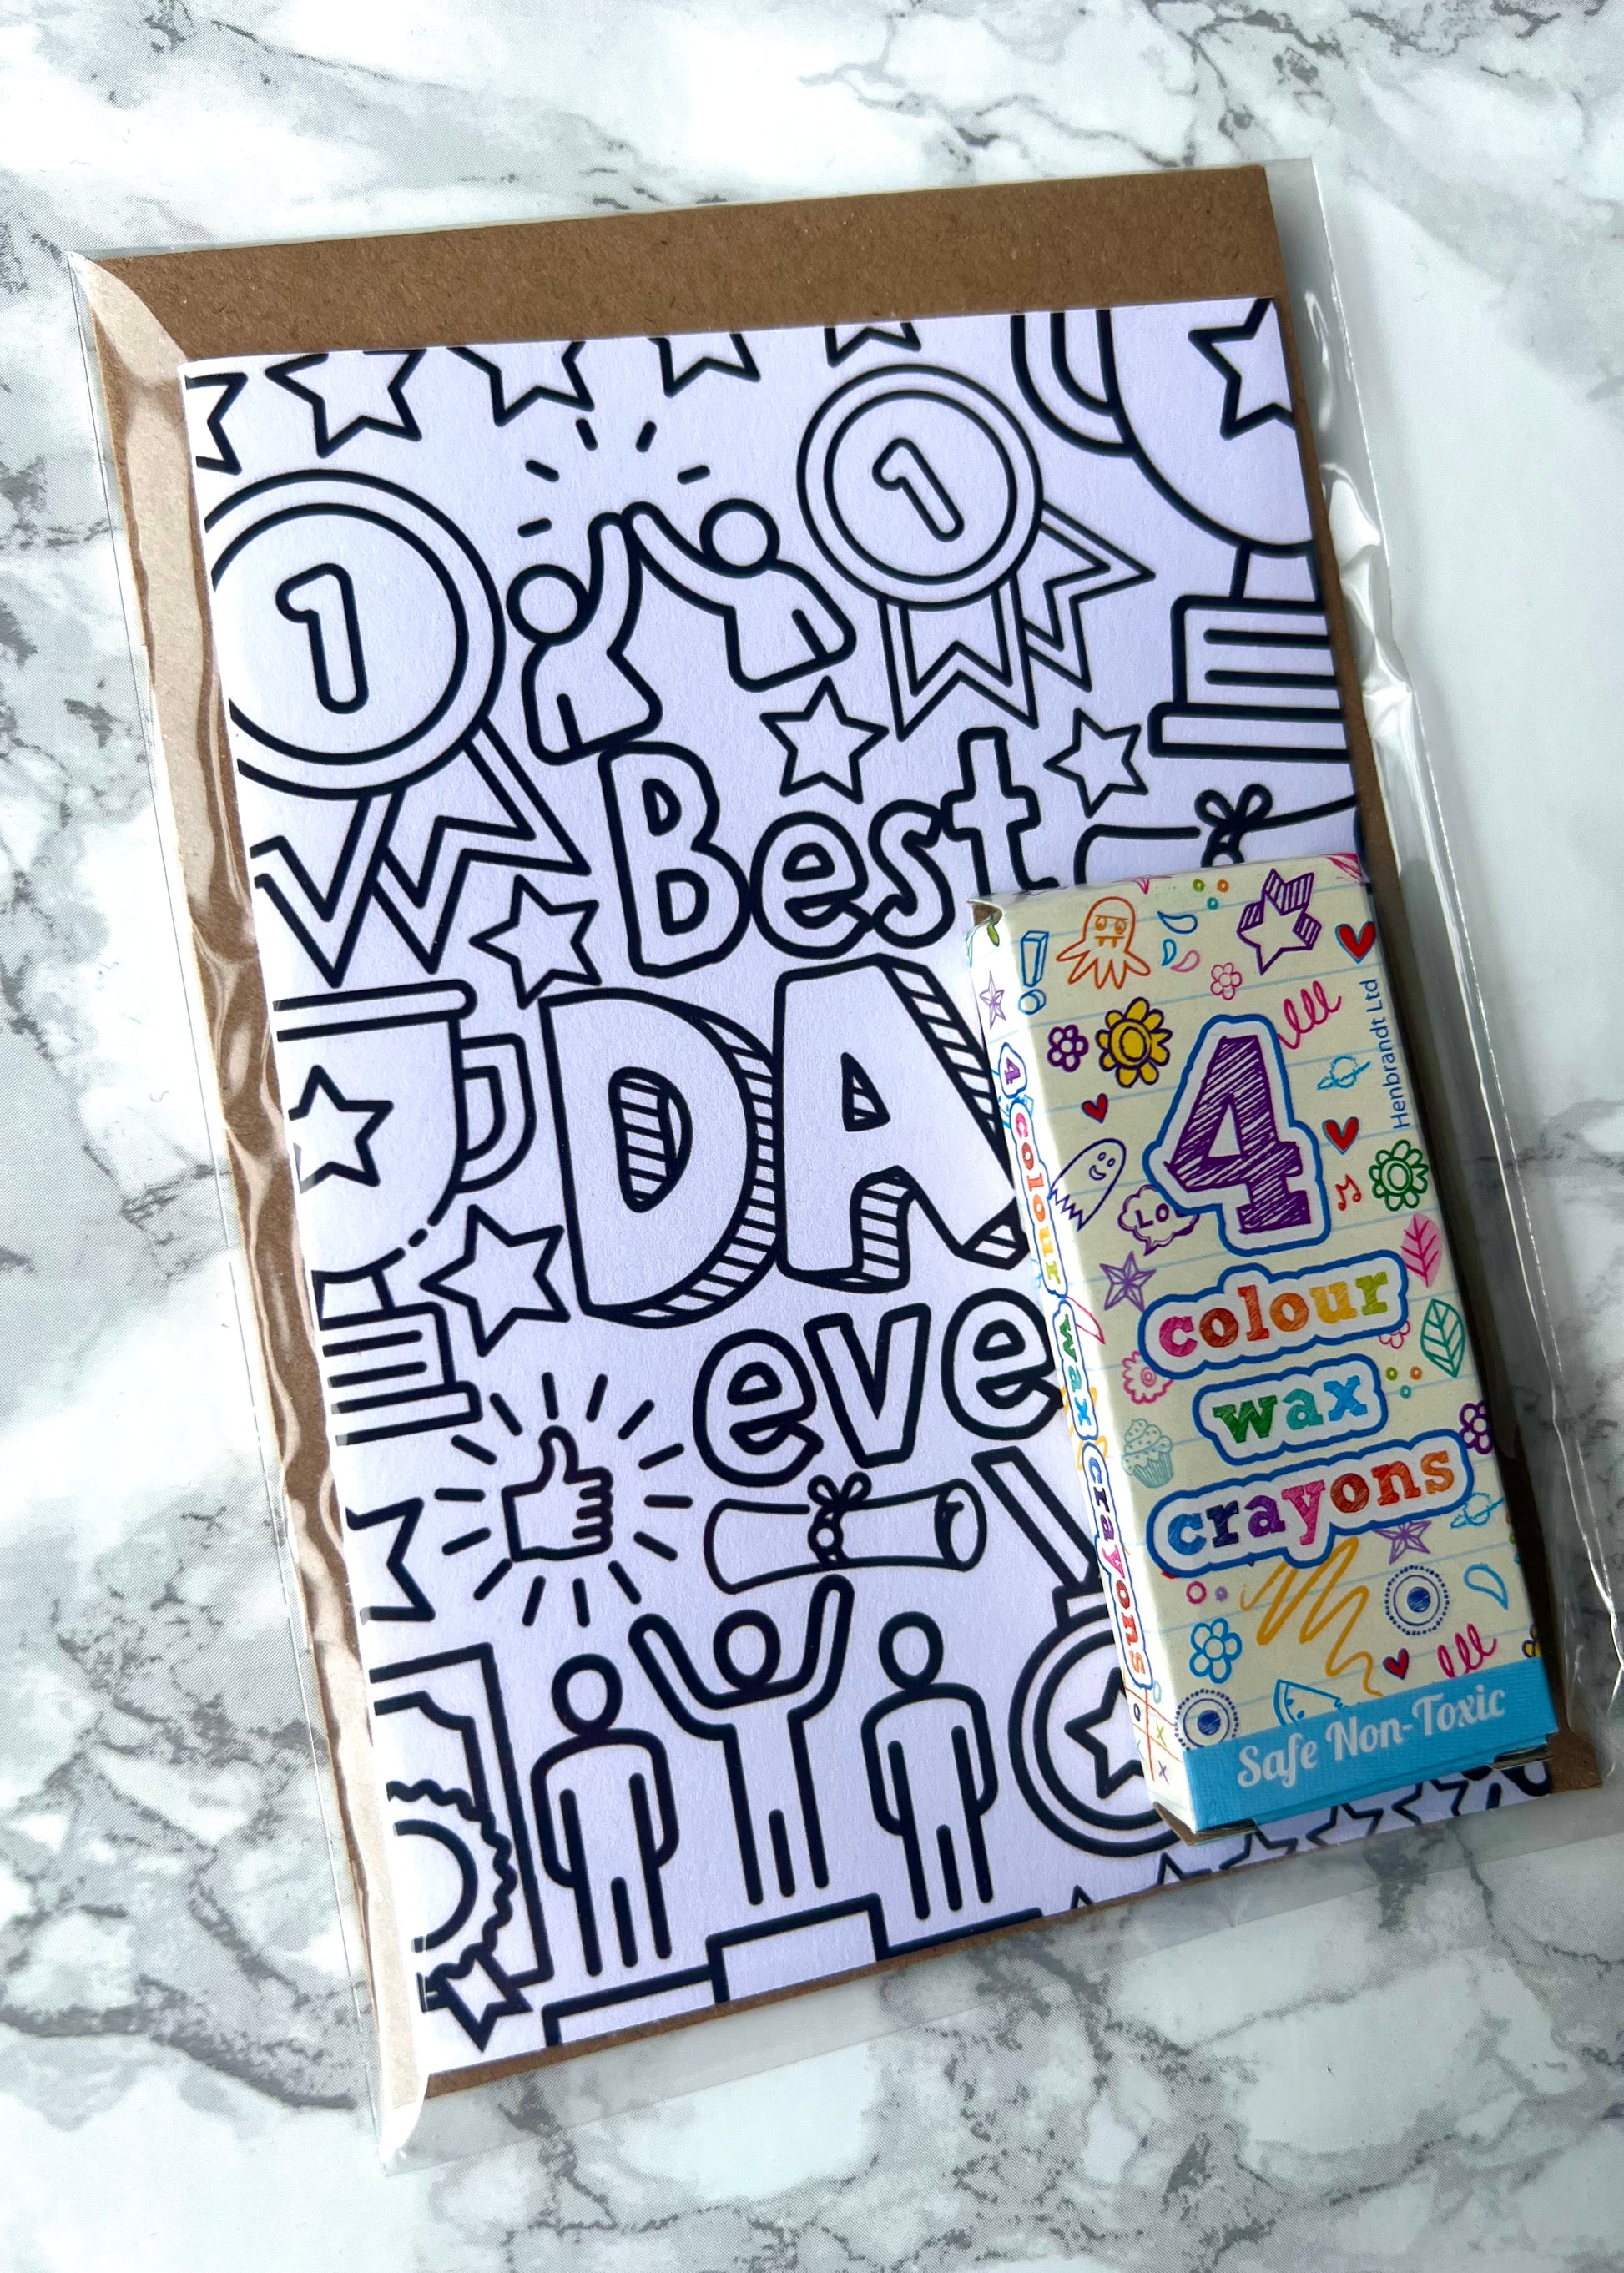 1
1
Best
DA
eve
4
colour
wax
crayons
Henbrandt Ltd
LO
Safe Non-Toxic
4 colour wax crayons